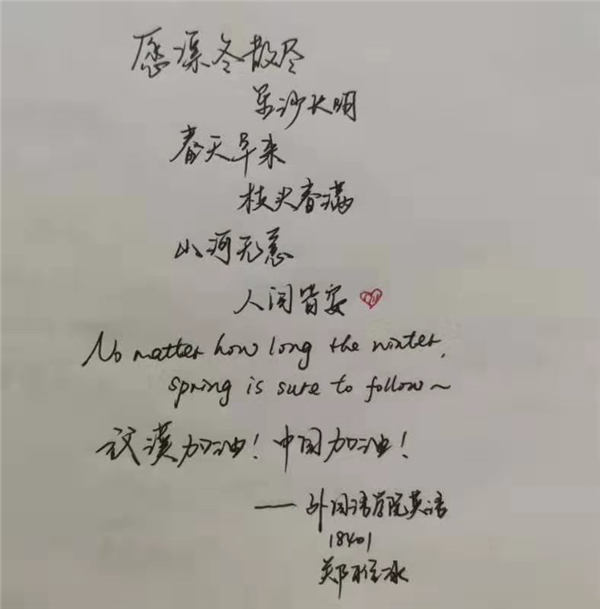 愿凛冬散尽
星沙长明
春天早来
枝头春满
山河无恙
人间皆安
No matter how long the winter,
spring is sure to follow~
武汉加油！中国加油！
——外国语学院英语
18401
郑雅冰